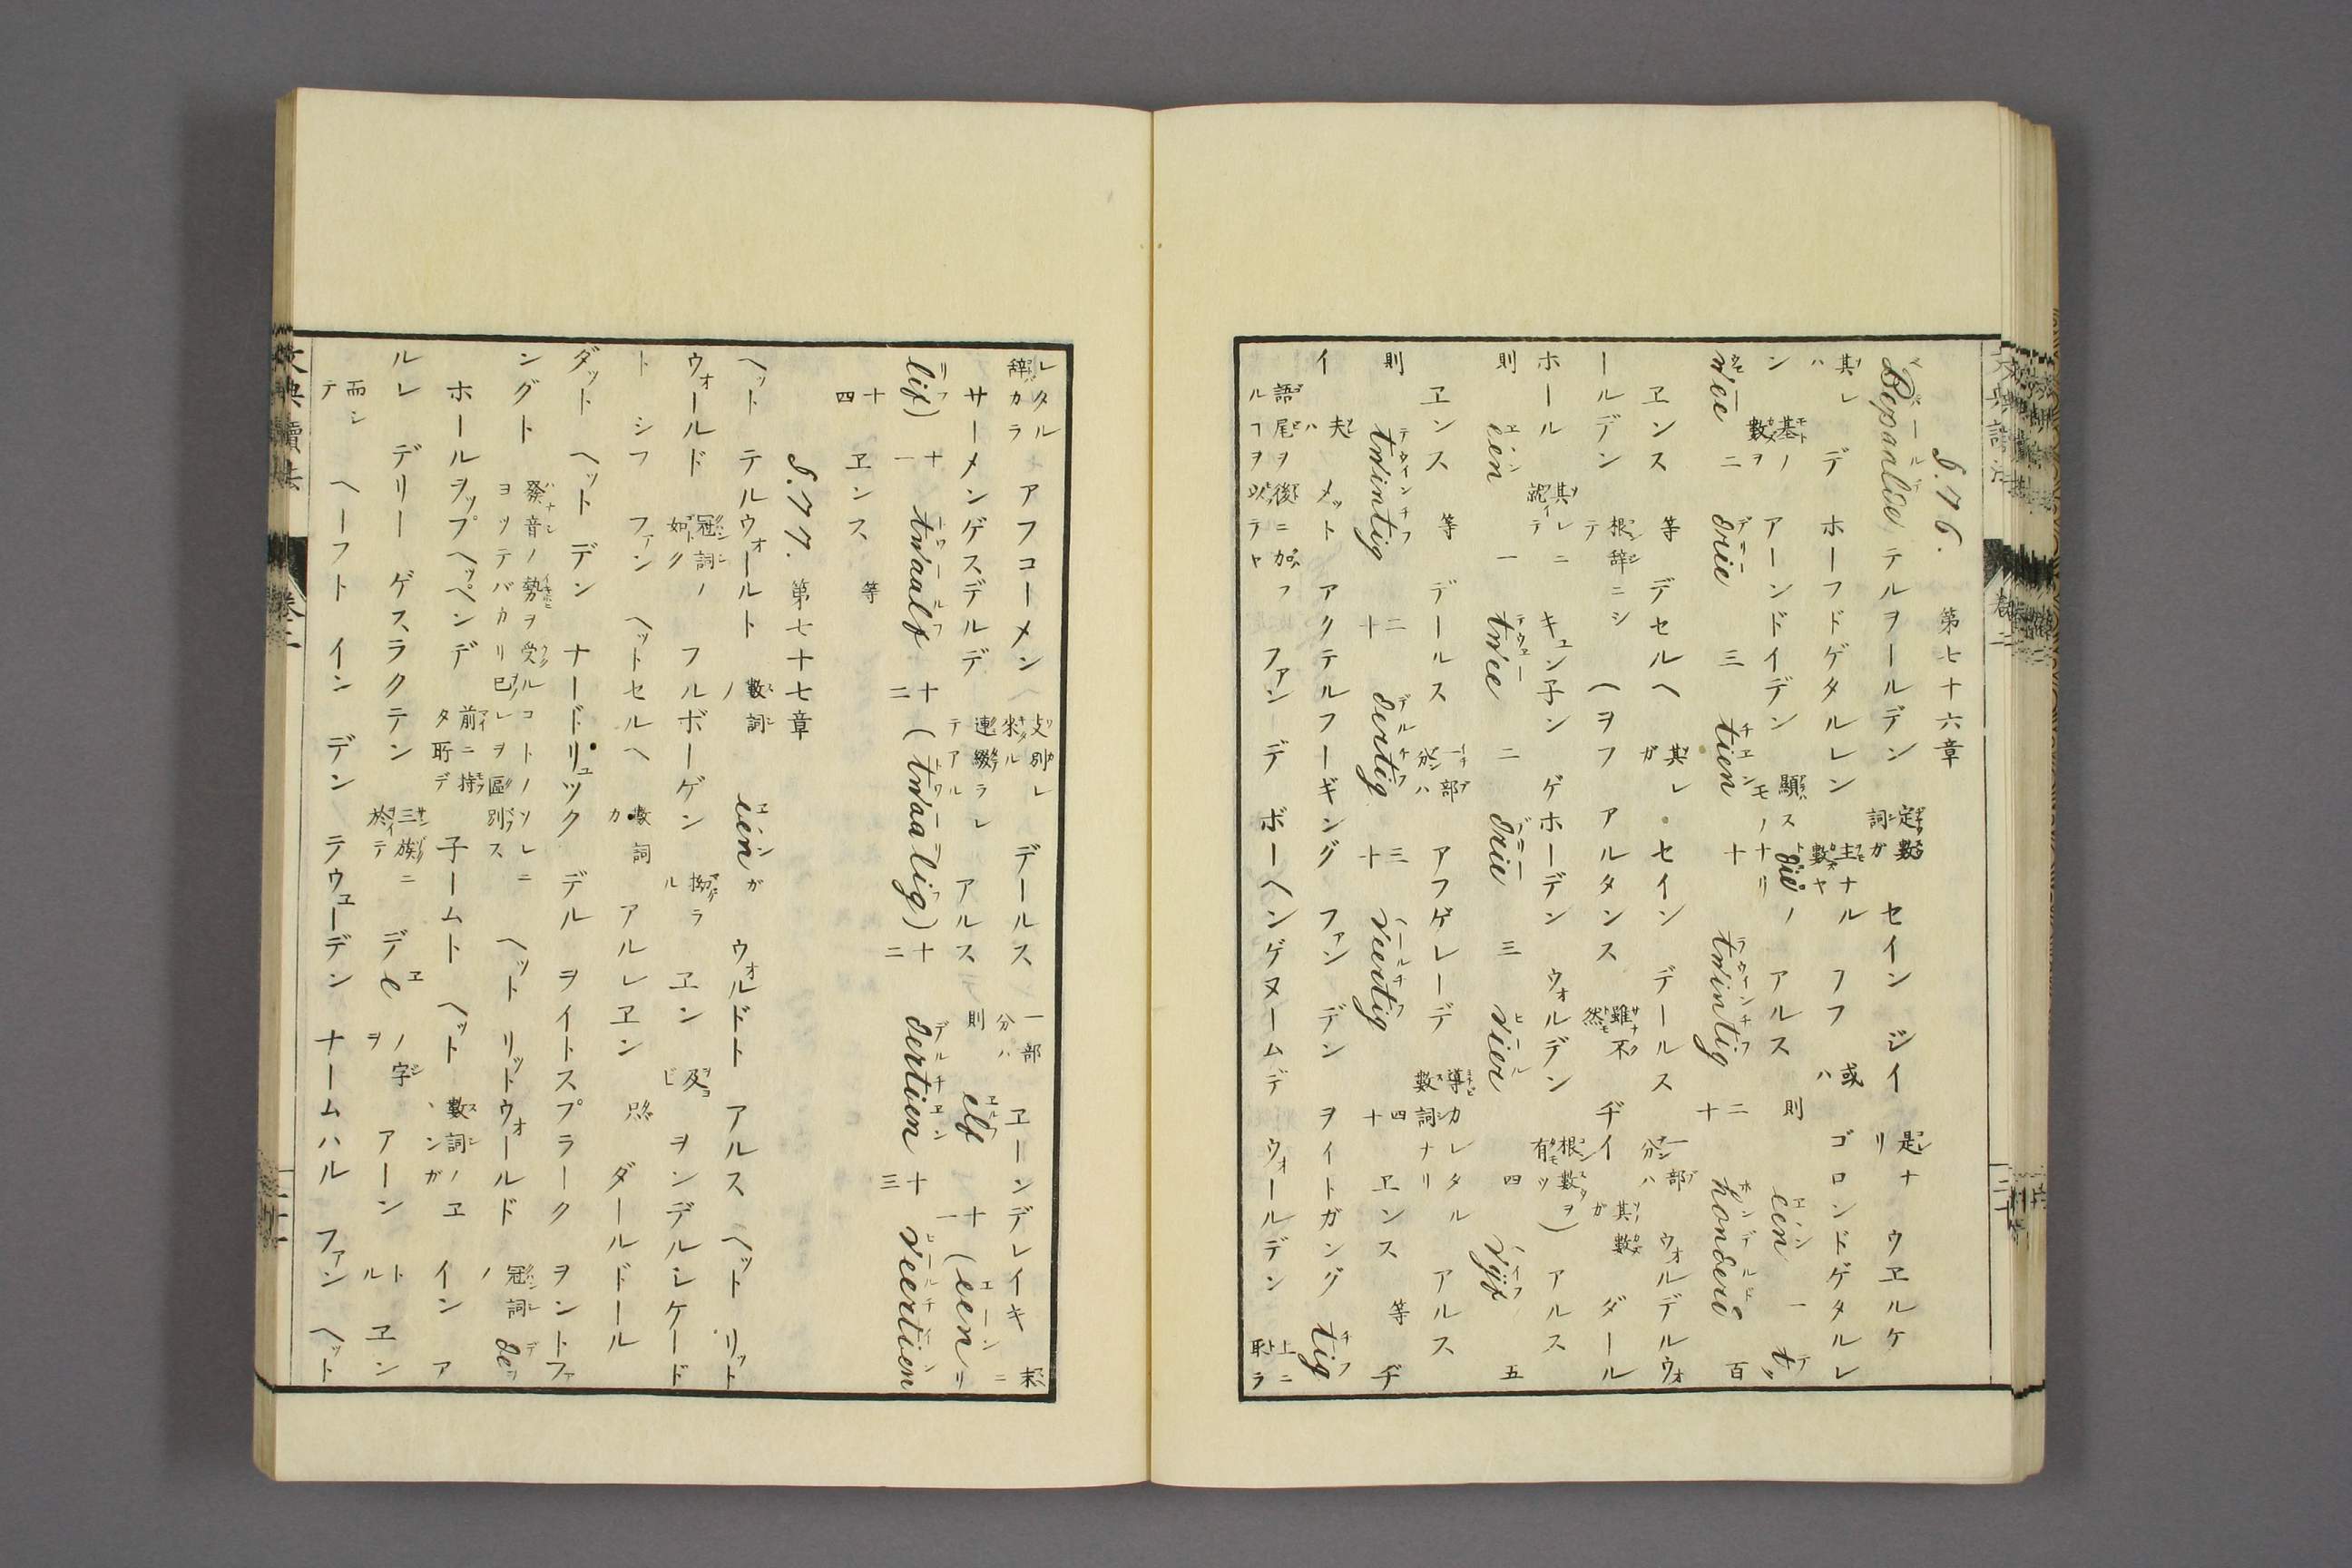 §.76. 第七十六章
Bepaalde テルヲールデン 定數詞ガ セイン ジイ 是ナリ ウエルケ
其レハ デ ホーフドゲタルレン 主ナル數ヤ フフ 或ハ ゴロンドゲタルレ
ン 基ノ數ヲ アーンドイデン 顯スモノナリ die ノ アルス 則 één 一 t
wéé 二 drie 三 tien 十 twintig 二十 honderd 百
エンス 等 デセルヘ 其レガ セイン デールス 一部分ハ ウォルデルウォ
ールデン 根辞ニシテ ヘヲフ アルタンス 雖不然 ヂイ 其數ガ ダール
ホール 其レニ就イテ キュン子ン ゲホーデン ウォルデン 根數ヲ有ツ) アルス
則 één 一 twee 二 drie 三 vier 四 vijf 五
エンス 等 デールス 一部分ハ アフゲレーデ 導カレタル數詞ナリ アルス
則 twintig 二十 dertig 三十 veertig 四十 エンス 等 ヂ
イ 夫ハ メット アクテルフーギング ファン デン ヲイトガング tig
語尾ヲ後ニ加フルヿヲ以テヤ ファン デ ボーヘンゲヌームデ ウォールデン 上ニ取ラ
レタル辞カラ アフコーメン 支別レ來ル デールス 一部分ハ エーンデレイキ 末ニ
サーメンゲスデルデ 連綴ラレテアル アルス 則 elf 十一 (eenlif) 十一 twaalf 十二 (twaalig) 十二 dertien 十三 veertien
十四 エンス 等
§.77. 第七十七章
ヘット テルウォールト 數詞ノ één ガ ウォルドト アルス ヘット リット
ウォールド 冠詞ノ如ク フルボーゲン 拗ラル エン 及ビ ヲンデルシケード
ト シフ ファン ヘットセルヘ 數詞カ アルレエン 只 ダールドール
ダット ヘット デン ナードリュック デル ヲイトスプラーク ヲントファ
ングト 發音ノ勢ヲ受ルコトノソレニヨツテバカリ已レヲ區別ス ヘット リットウォールド 冠詞ノ de
ホールヲップヘッペンデ 前ニ持タ所デ 子ームト ヘット 數詞ノエンガ イン ア
ルレ デリー ゲスラクテン 三族ニ於テ デ e ノ字ヲ アーン トル エン
而シテ ヘーフト イン デン テウューデン ナームハル ファン ヘット